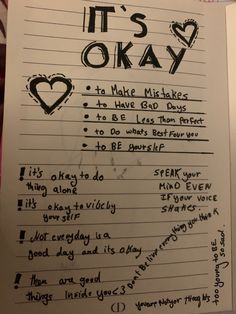 IT'S
OKAY
• to Make Mistakes
• to Have BaD Days
• to BE Less Than Perfect
• to Do whats Best Four you
• to BE Yourself
! it's okay to do
thing alone
! it's okay to vibe by
yourself
! Not everyday is a
good day and its okay
! there are good
things inside you <3
SPEAK your
MIND EVEN
IF your VOICE
SHAKES..
Don't Believe everything you think
too young to BE
so sad!
you are Not your thoughts